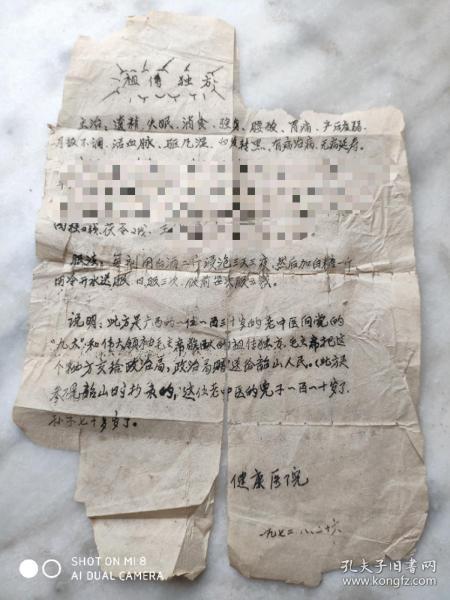 祖传独方
主治：遗精、失眠、消食、强身、腰酸、胃痛、产后虚弱、
月经不调、活血脉、驱风湿、白发转黑、有病治病、无病延寿。
肉桂2钱、茯苓2钱、
服法：每剂用白酒二斤浸泡三天三夜，然后加白糖一斤
用冷开水送服，日服三次，饭前
说明：此方是广西的一位一百三十岁的老中医向党的
"九大"和伟大领袖毛主席献的祖传独方，毛主席把这
个秘方交给政治局，政治局赠送给韶山人民。（此方是
韶山时抄来的，这位老中医的儿子一百一十岁了，
孙子七十多岁了。
健康医院
一九七二.八.二十六
SHOT ON MI 8
AI DUAL CAMERA
孔夫子旧书网
www.kongfz.com